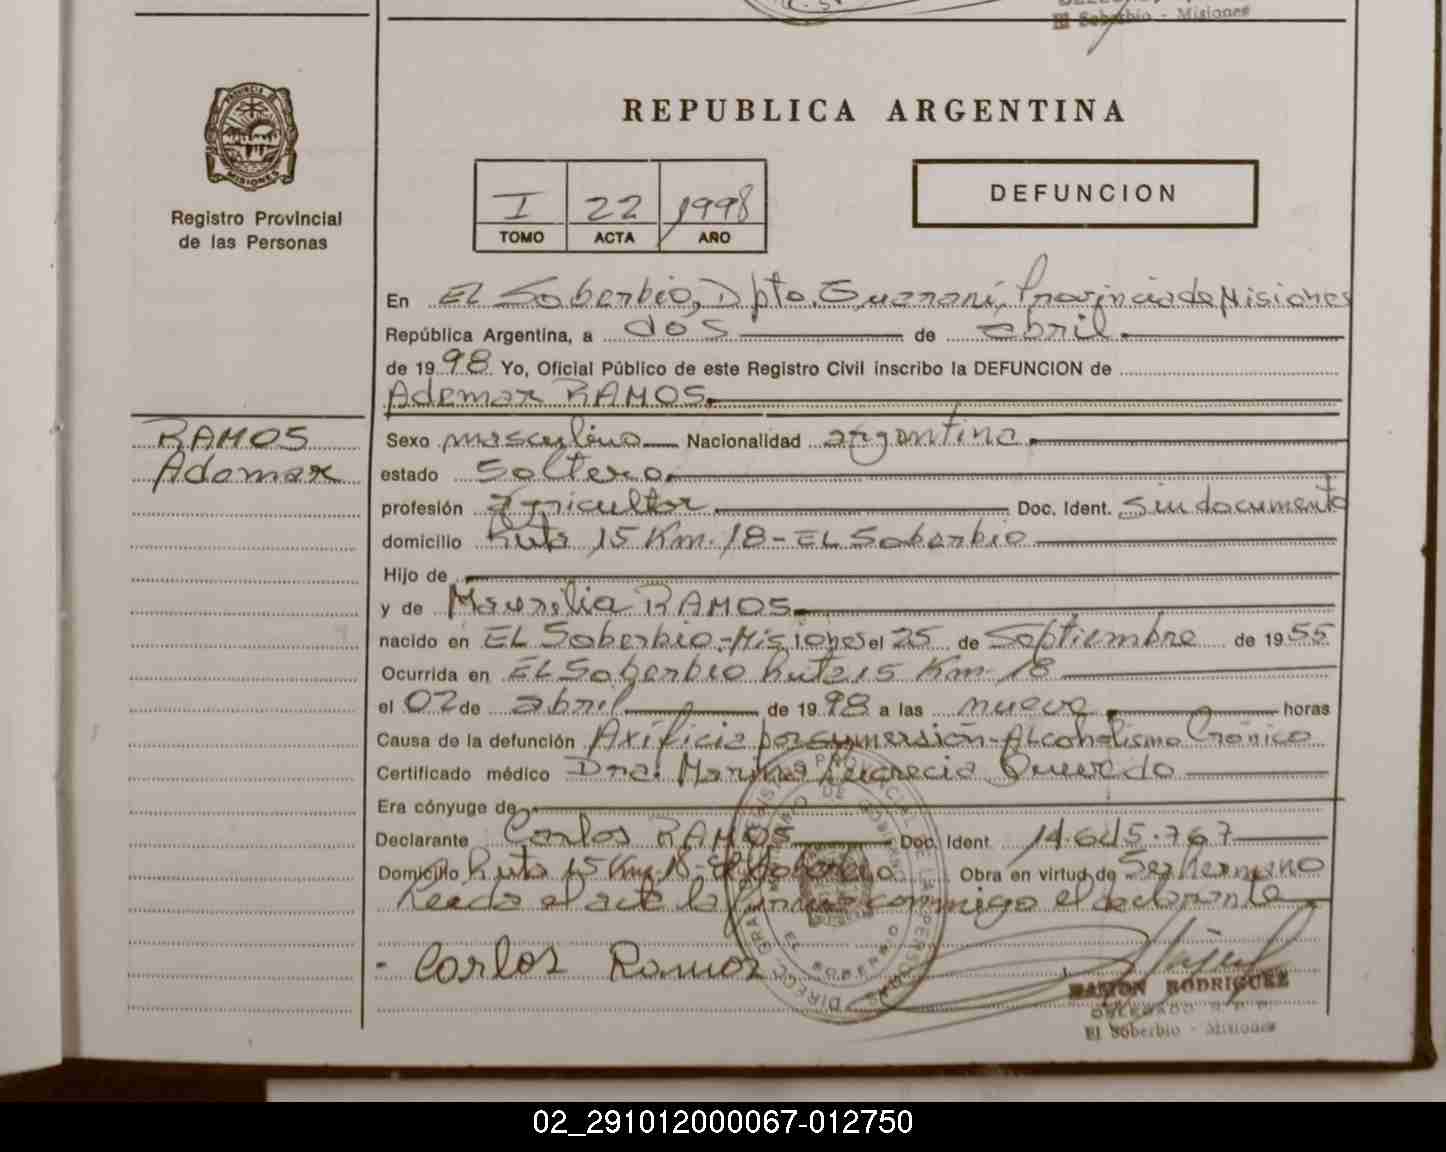 El Soberbio - Misiones
PROVINCIA DE
MISIONES
Registro Provincial
de las Personas
REPUBLICA ARGENTINA
I 22 1998
TOMO ACTA AÑO
DEFUNCION
En EL Soberbio, Dpto. Guaraní, Provincia de Misiones
República Argentina, a dos de abril
de 1998 Yo, Oficial Público de este Registro Civil inscribo la DEFUNCION de
Ademar RAMOS
RAMOS
Ademar
Sexo masculino Nacionalidad argentina
estado Soltero
profesión agricultor Doc. Ident. Sin documento
domicilio Ruta 15 Km. 18 - EL Soberbio
Hijo de
y de Maurilia RAMOS
nacido en EL Soberbio - Misiones el 25 de Septiembre de 1955
Ocurrida en EL Soberbio Ruta 15 Km. 18
el 02 de abril de 1998 a las nueve horas
Causa de la defunción Axificia por symersión - Alcoholismo Crónico
Certificado médico Dra. Marina Lucrecia Quevedo
Era cónyuge de
Declarante Carlos RAMOS Doc. Ident. 14.645.767
Domicilio Ruta 15 Km. 18 - El Soberbio Obra en virtud de Ser hermano
Leeda el acta la firma conmigo el declarante
- Carlos Ramos
RAMON RODRIGUEZ
DELEGADO R.P.P.
El Soberbio - Misiones
02_291012000067-012750